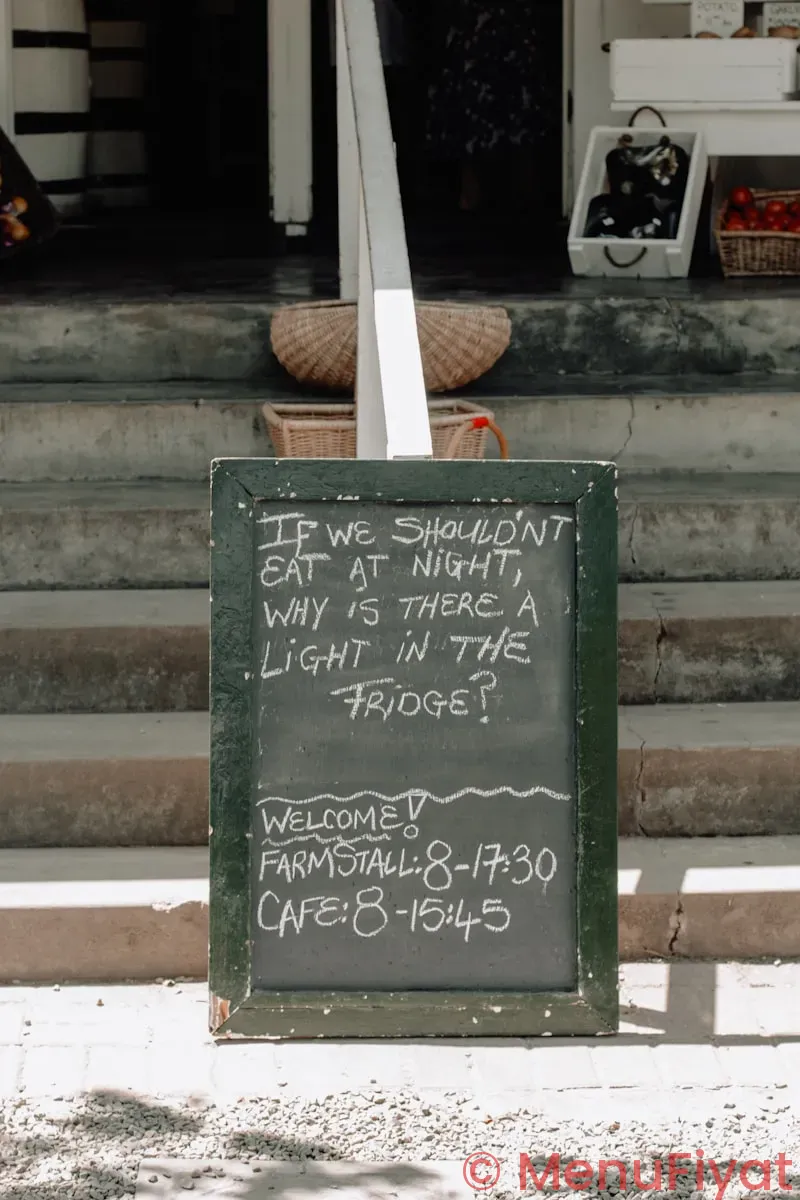 POTATO
IF WE SHOULD'NT
EAT AT NIGHT,
WHY IS THERE A
LIGHT IN THE
FRIDGE?
WELCOME!
FARMSTALL: 8-17:30
CAFE: 8-15:45
© MenuFiyat